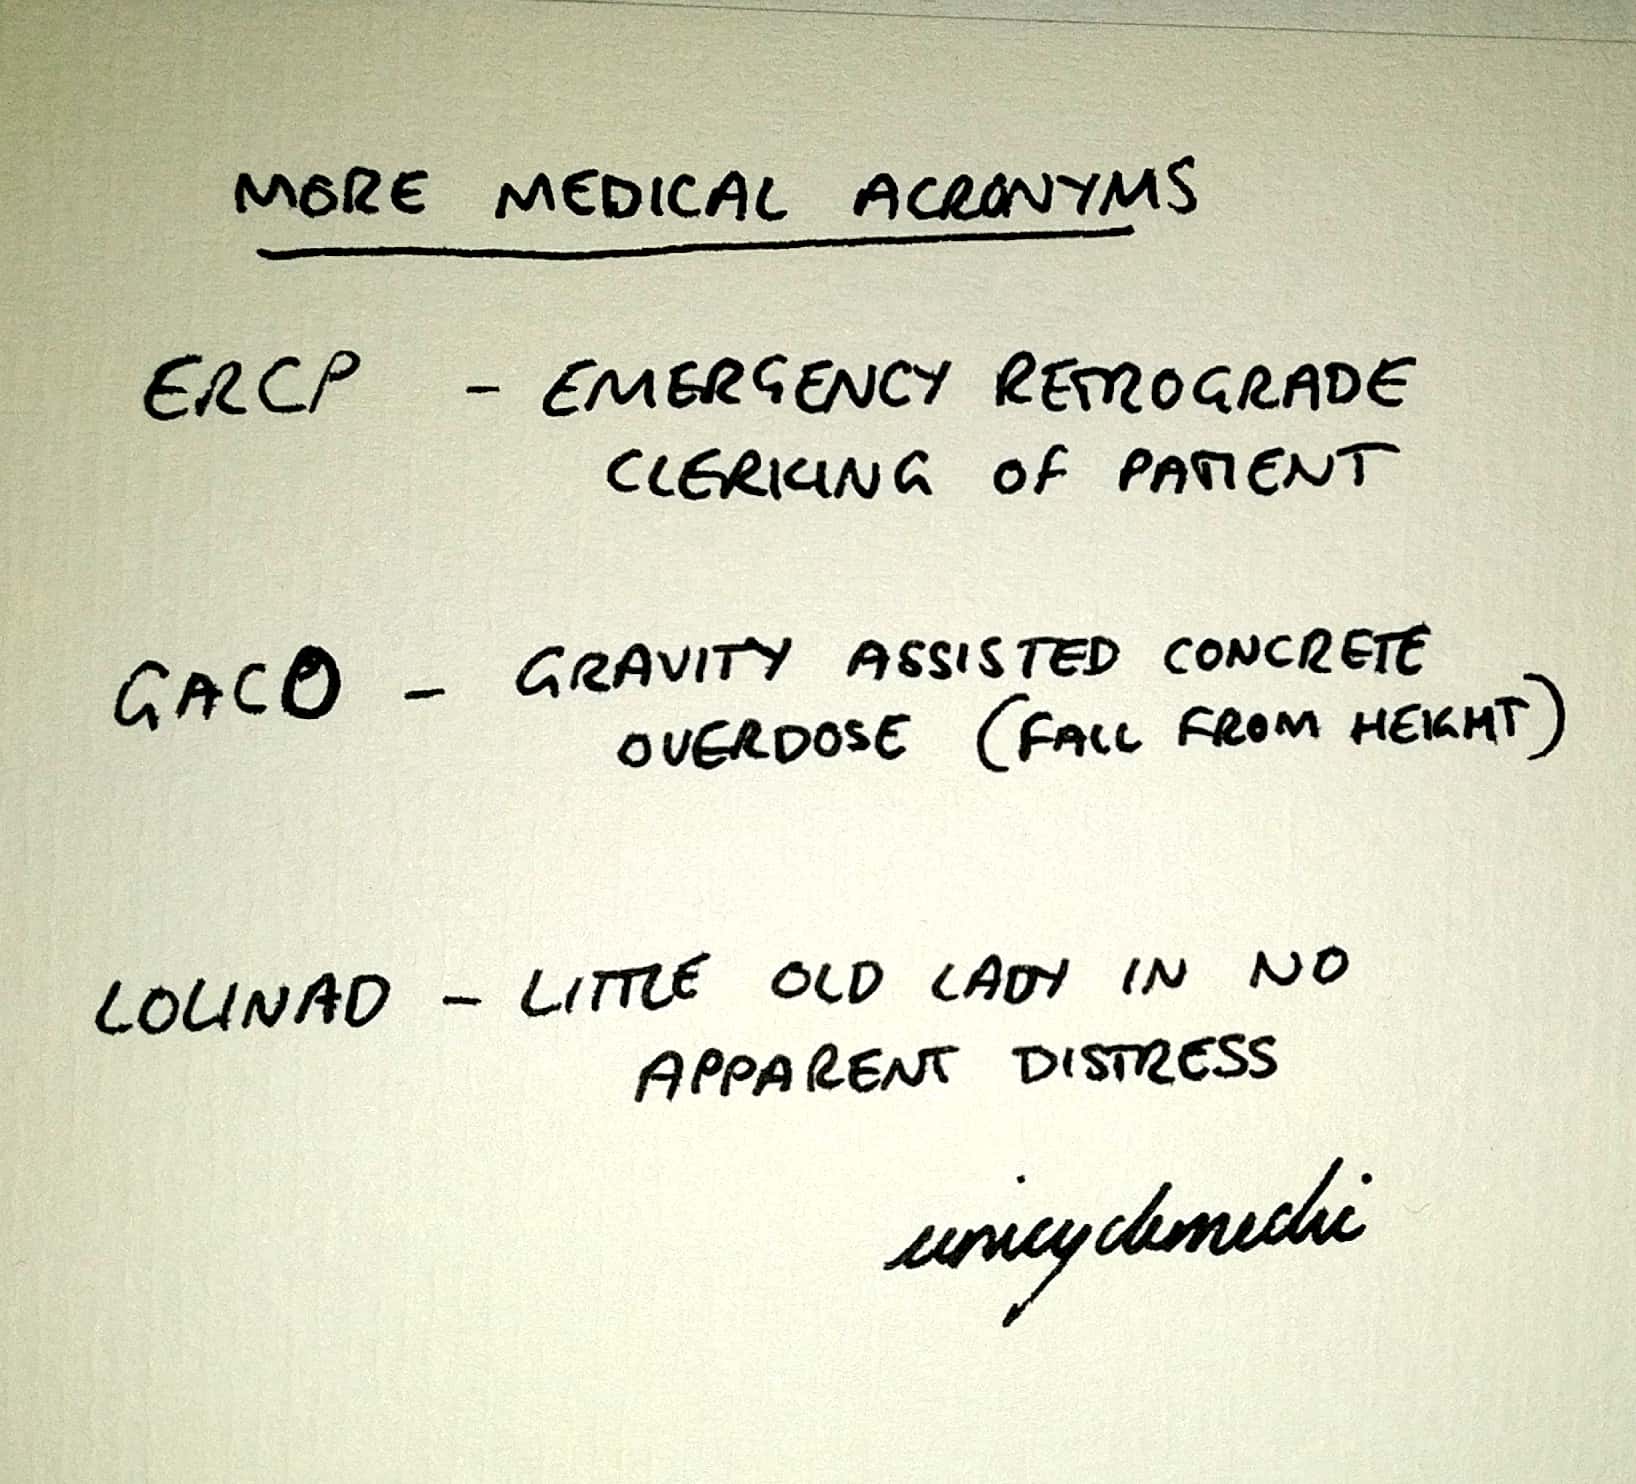 MORE MEDICAL ACRONYMS
ERCP - EMERGENCY RETROGRADE
CLERKING OF PATIENT
GACO - GRAVITY ASSISTED CONCRETE
OVERDOSE (FALL FROM HEIGHT)
LOLINAD - LITTLE OLD LADY IN NO
APPARENT DISTRESS
unicyclemedic